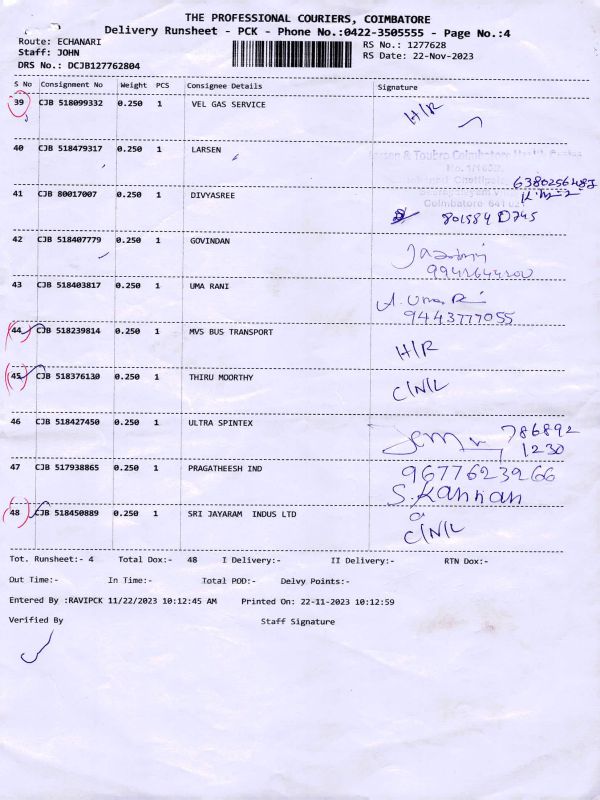 THE PROFESSIONAL COURIERS, COIMBATORE
Delivery Runsheet - PCK - Phone No.:0422-3505555 - Page No.:4
Route: ECHANARI
Staff: JOHN
DRS No.: DCJB127762804
RS No.: 1277628
RS Date: 22-Nov-2023
S No Consignment No Weight PCS Consignee Details Signature
39 CJB 518099332 0.250 1 VEL GAS SERVICE H/R
40 CJB 518479317 0.250 1 LARSEN
41 CJB 80017007 0.250 1 DIVYASREE
Coimbatore 641 021
42 CJB 518407779 0.250 1 GOVINDAN
43 CJB 518403817 0.250 1 UMA RANI
9443777055
44 CJB 518239814 0.250 1 MVS BUS TRANSPORT H/R
45 CJB 518376130 0.250 1 THIRU MOORTHY C/N/L
46 CJB 518427450 0.250 1 ULTRA SPINTEX 786892
1230
47 CJB 517938865 0.250 1 PRAGATHEESH IND 9677623266
S. Kannan
48 CJB 518450889 0.250 1 SRI JAYARAM INDUS LTD C/N/L
Tot. Runsheet:- 4 Total Dox:- 48 I Delivery:- II Delivery:- RTN Dox:-
Out Time:- In Time:- Total POD:- Delvy Points:-
Entered By :RAVIPCK 11/22/2023 10:12:45 AM Printed On: 22-11-2023 10:12:59
Verified By Staff Signature